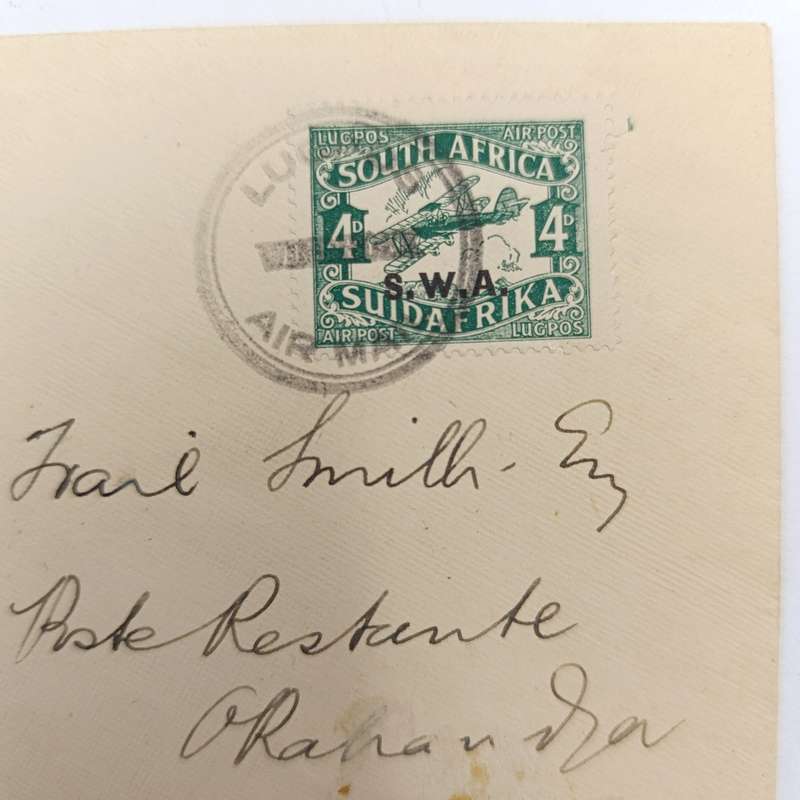 LUGPOS AIR POST
SOUTH AFRICA
4D 4D
S.W.A.
SUIDAFRIKA
AIR POST LUGPOS
AIR MA
Smith. Esq
Poste Restante
Okahandja